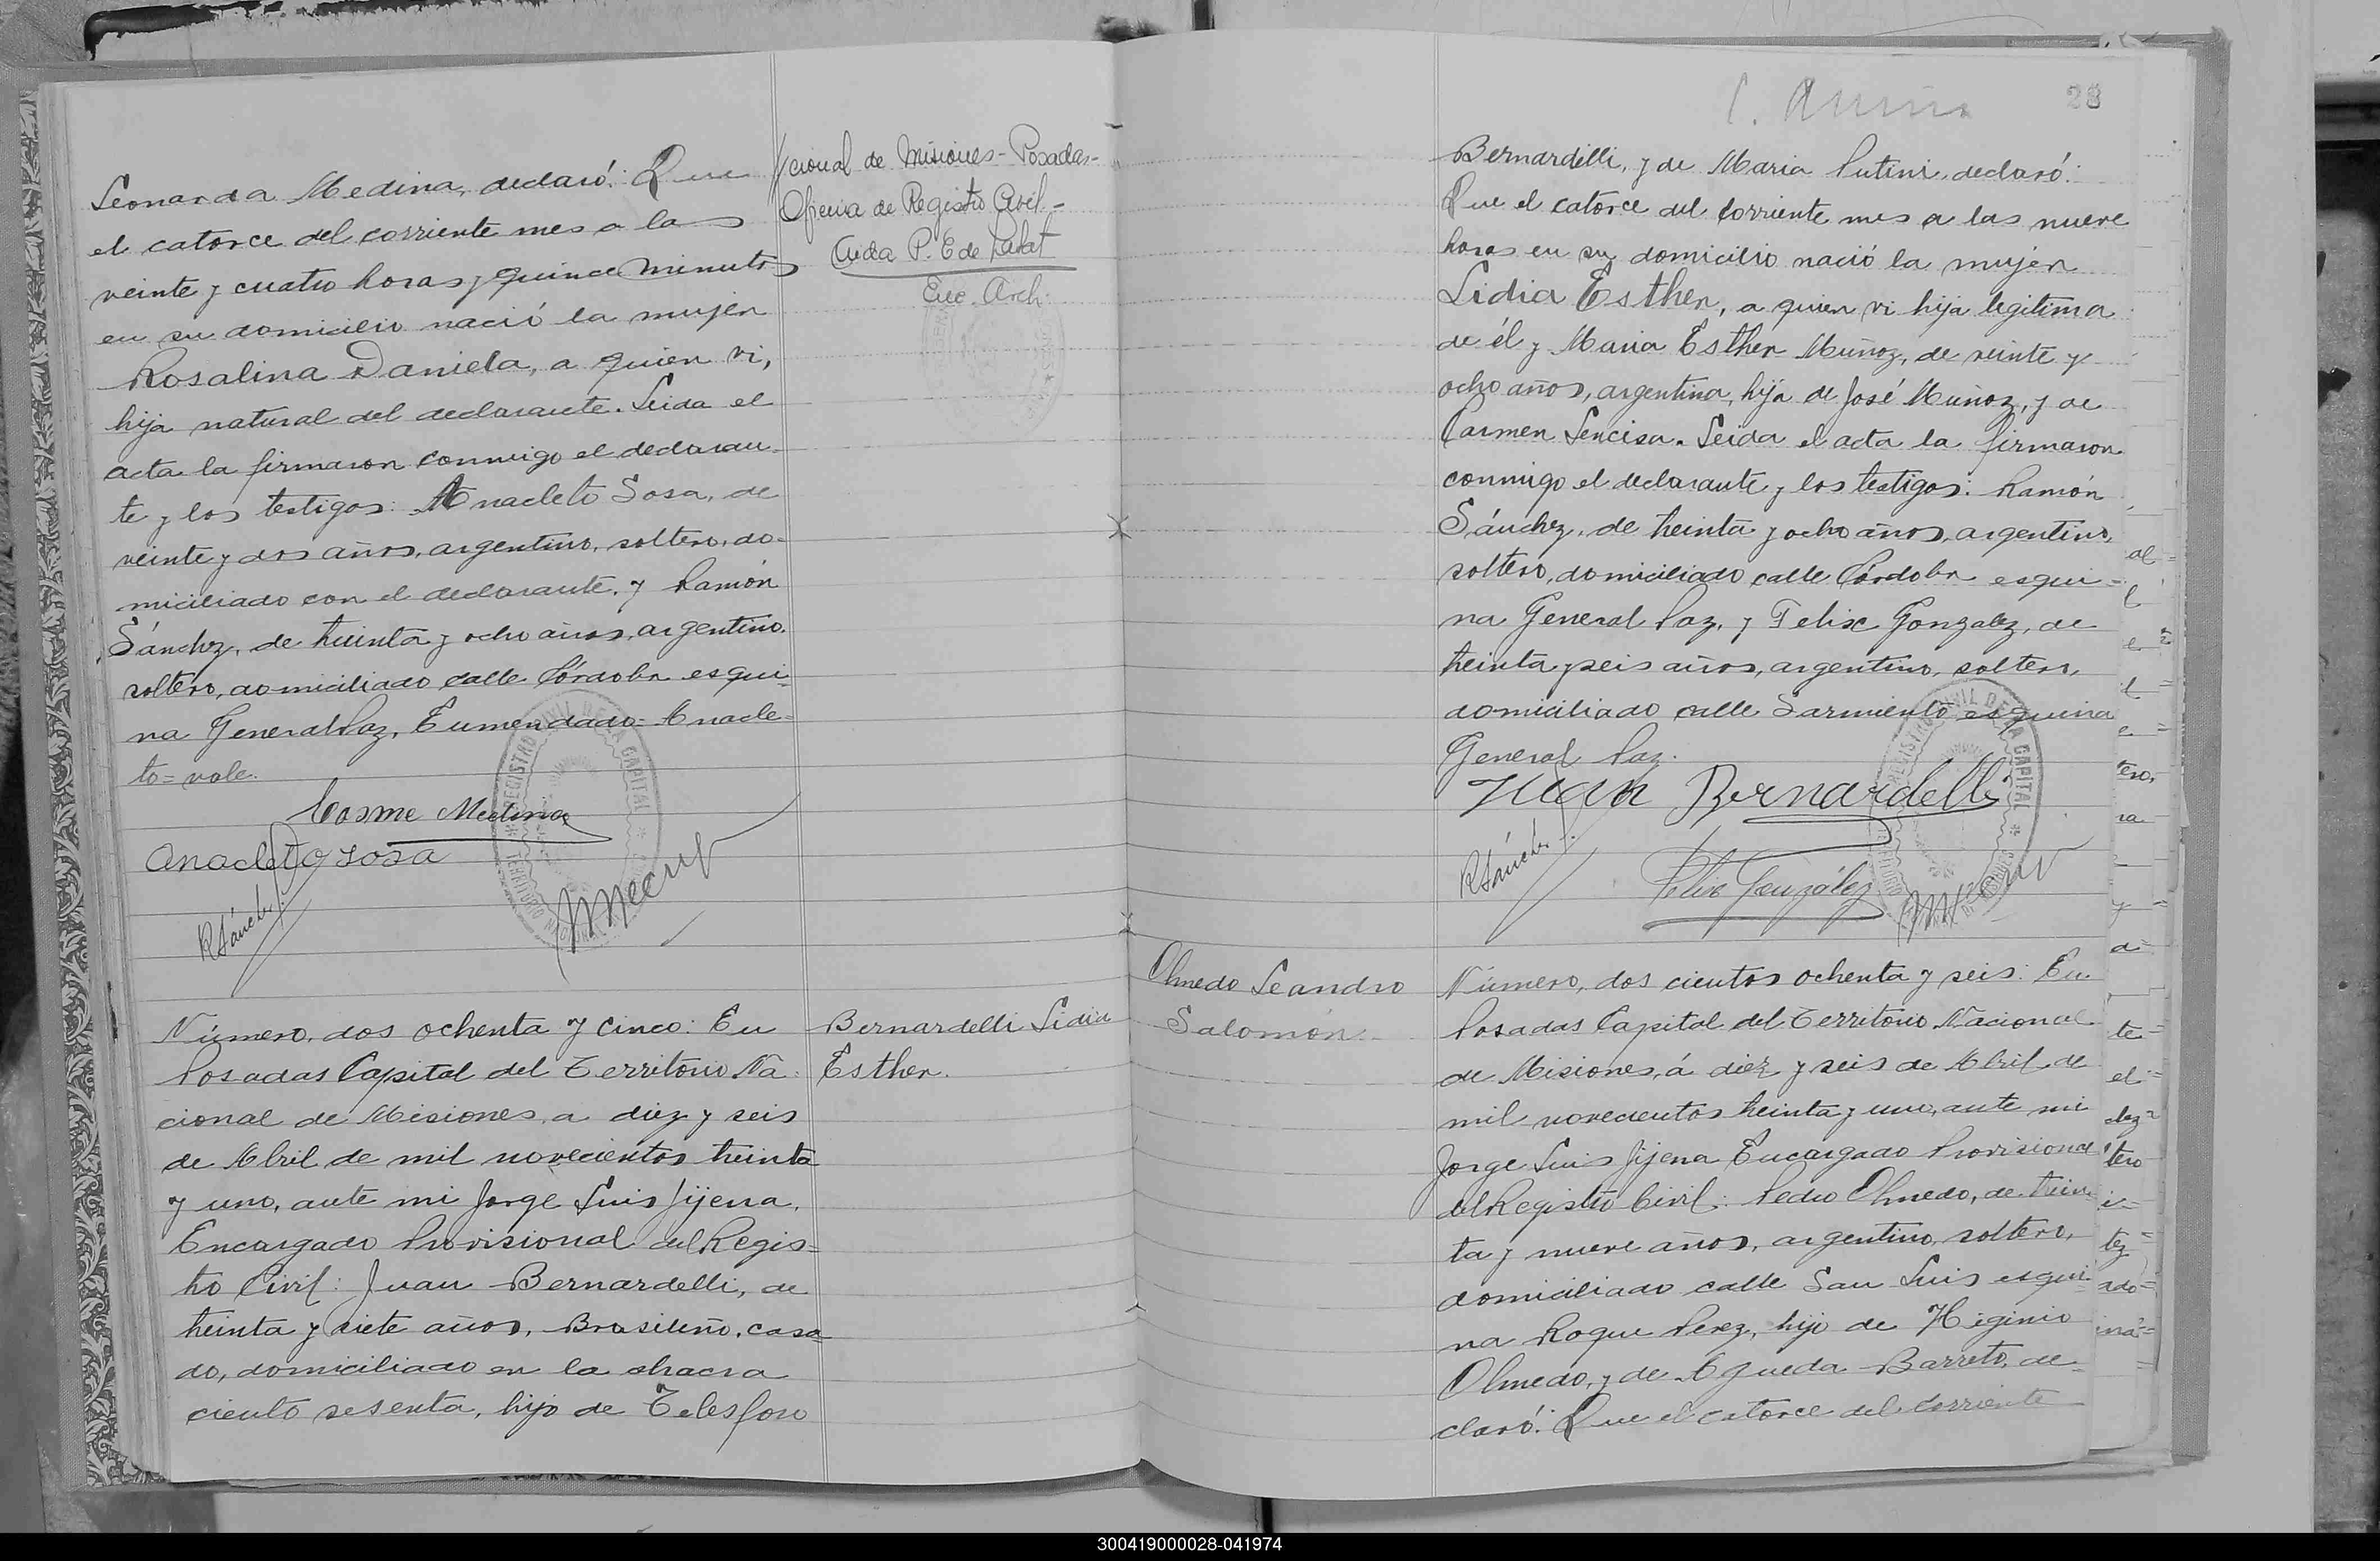 Leonarda Medina, declaró: Que
el catorce del corriente mes a las
veinte y cuatro horas y quince minutos
en su domicilio nació la mujer
Rosalina Daniela, a quien vi,
hija natural del declarante. Leida el
acta la firmaron conmigo el declaran-
te y los testigos: Anacleto Sosa, de
veinte y dos años, argentino, soltero, do-
miciliado con el declarante, y Ramón
Sánchez, de treinta y ocho años, argentino,
soltero, domiciliado calle Córdoba esqui-
na General Paz, Enmendado= Anacle-
to= vale.
Cosme Medina
Anacleto Sosa
RSánchez
cional de Misiones- Posadas-
Oficina de Registro Civil-
Aida P. E de
Enc. Arch.
Número, dos ochenta y cinco: En
Posadas Capital del Territorio Na-
cional de Misiones, a diez y seis
de Abril de mil novecientos treinta
y uno, ante mi Jorge Luis Jijena,
Encargado Provisional del Regis=
tro Civil: Juan Bernardelli, de
treinta y siete años, Brasileño, casa=
do, domiciliado en la chacra
ciento sesenta, hijo de Telesforo
Bernardelli Lidia
Esther.
28
Bernardelli, y de Maria Putini, declaró:
Que el catorce del corriente mes a las nueve
horas en su domicilio nació la mujer
Lidia Esther, a quien vi hija legitima
de él y Maria Esther Muñoz, de veinte y
ocho años, argentina, hija de José Muñoz, y de
Carmen Lencisa. Leida el acta la firmaron
conmigo el declarante y los testigos: Ramón
Sánchez, de treinta y ocho años, argentino,
soltero, domiciliado calle Córdoba esqui=
na General Paz, y Felix Gonzalez, de
treinta y seis años, argentino, soltero,
domiciliado calle Sarmiento esquina
General Paz.
Juan Bernardelli
RSánchez
Felix González
Olmedo Leandro
Salomón
Número, dos cientos ochenta y seis: En
Posadas Capital del Territorio Nacional
de Misiones, á diez y seis de Abril de
mil novecientos treinta y uno, ante mi
Jorge Luis Jijena Encargado Provisional
del Registro Civil: Pedro Olmedo, de trein
ta y nueve años, argentino, soltero,
domiciliado calle San Luis esqui
na Roque Perez, hijo de Higinio
Olmedo, y de Agueda Barreto, de=
claró: Que el catorce del corriente
300419000028-041974